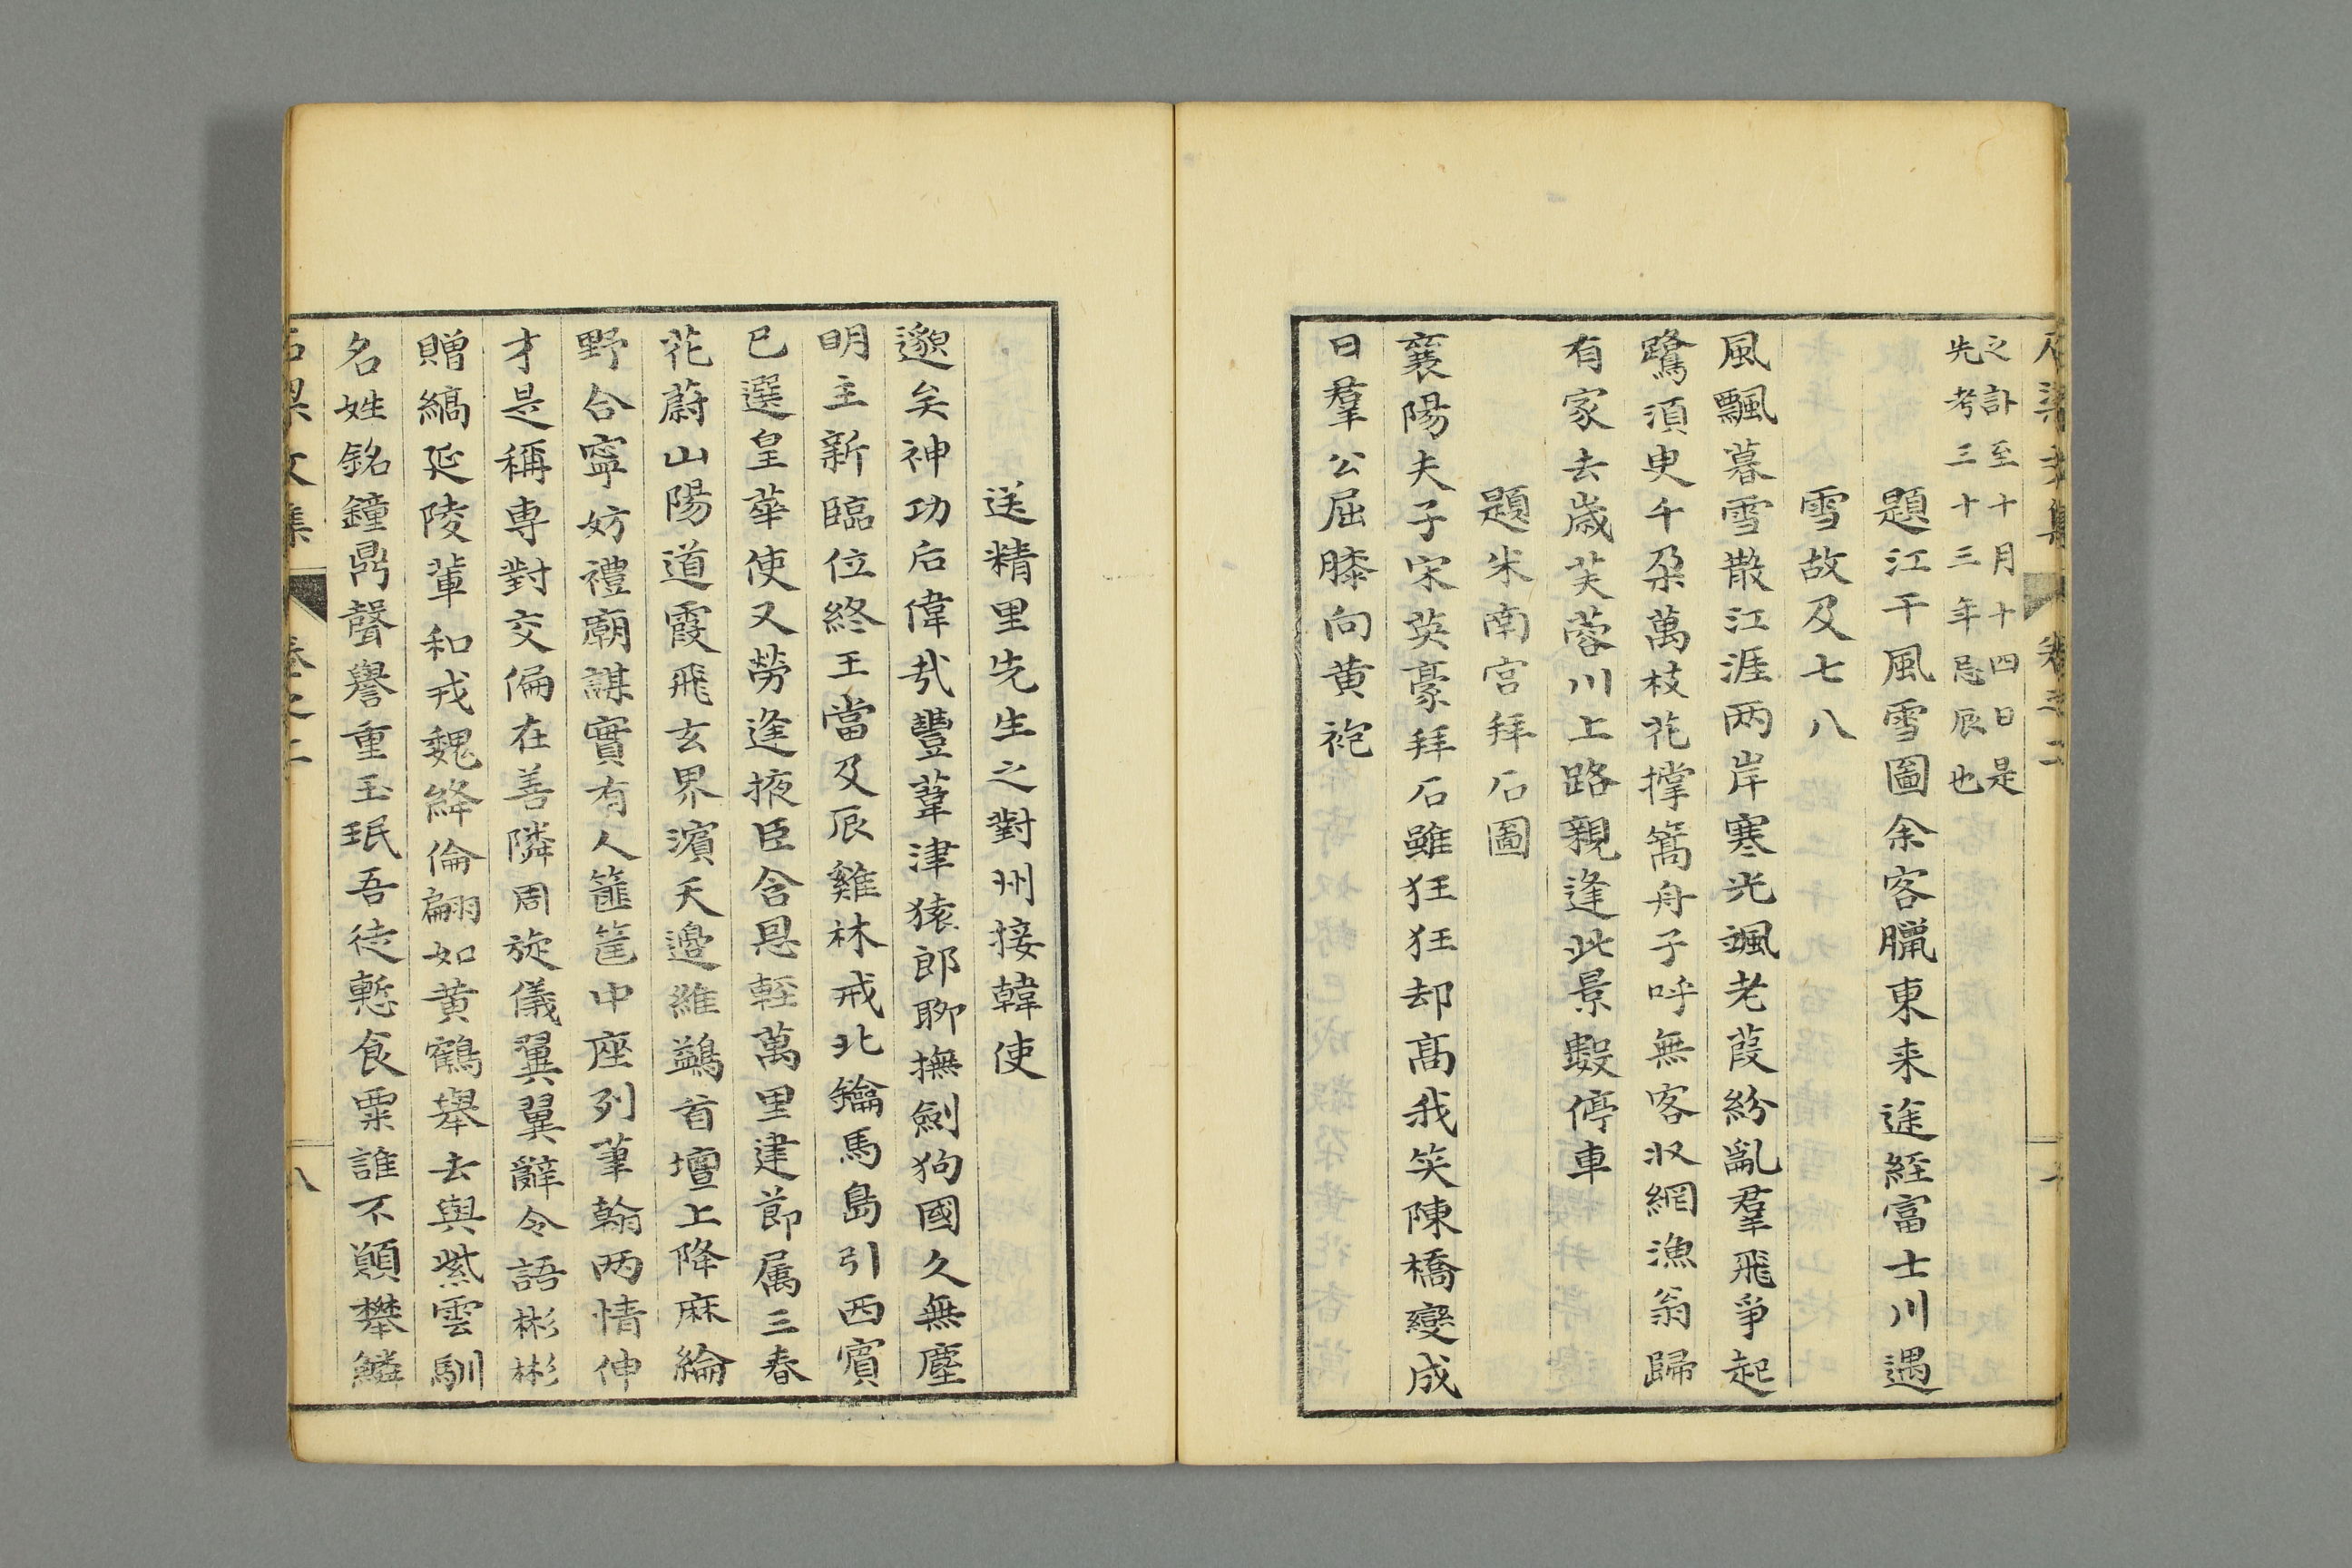 之訃至十月十四日是
先考三十三年忌辰也
題江干風雪圖余客臘東来途経富士川遇
雪故及七八
風飄暮雪散江涯两岸寒光颯老葭紛亂羣飛爭起
鷺須臾千朶萬枝花撑篙舟子呼無客収網漁翁歸
有家去歲芙蓉川上路親逢此景數停車
題米南宫拜石圖
襄陽夫子宋英豪拜石雖狂狂却髙我笑陳橋變成
日羣公屈膝向黄袍
送精里先生之對州接韓使
邈矣神功后偉哉豐葦津猿郎聊撫劍狗國久無塵
明主新臨位終王當及辰雞林戒北鑰馬島引西賓
已選皇華使又勞逢掖臣含恩輕萬里建節属三春
花蔚山陽道霞飛玄界濱天邊維鷁首壇上降麻綸
野合寧妨禮廟謀實有人篚筐中座列筆翰两情伸
才是稱専對交偏在善隣周旋儀翼翼辭令語彬彬
贈縞延陵輩和戎魏絳倫翩如黄鶴舉去與紫雲馴
名姓銘鐘鼎聲譽重玉珉吾徒慙食粟誰不願攀鱗
文集
卷之二
八